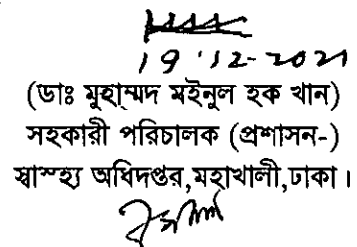 19.12-2021
(ডাঃ মুহাম্মদ মইনুল হক খান)
সহকারী পরিচালক (প্রশাসন-)
স্বাস্হ্য অধিদপ্তর,মহাখালী,ঢাকা।